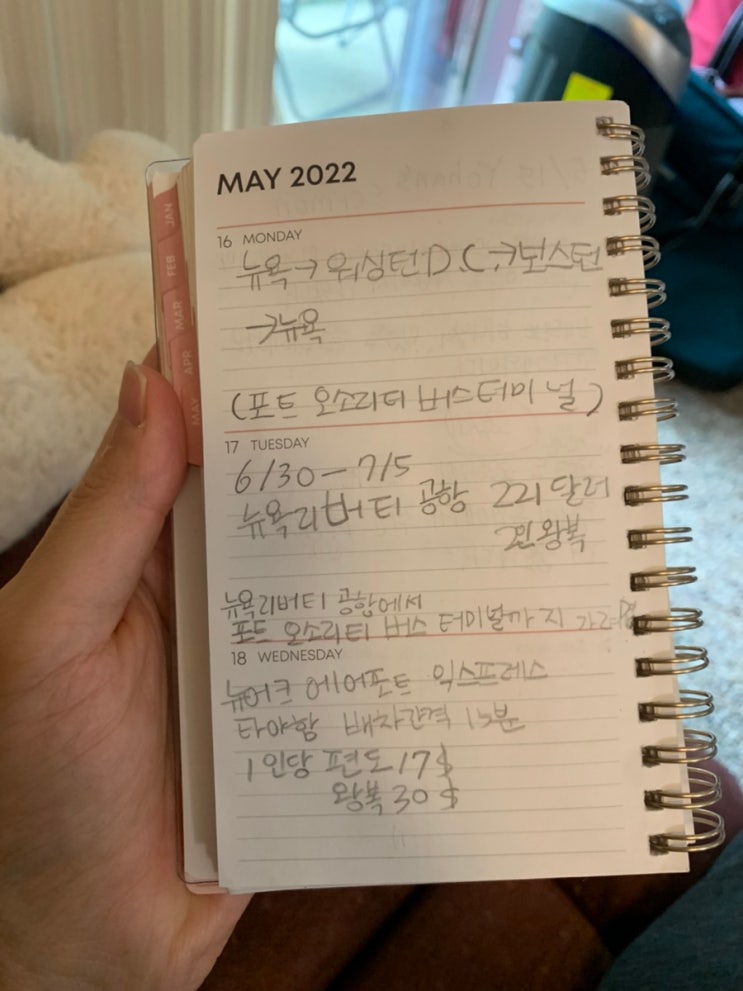 MAY 2022
JAN
FEB
MAR
APR
MAY
16 MONDAY
뉴욕 → 워싱턴 D.C → 보스턴
→ 뉴욕
(포트 오소리티 버스터미널)
17 TUESDAY
6/30 - 7/5
뉴욕리버티 공항 221달러
왕복
뉴욕리버티 공항에서
포트 오소리티 버스 터미널까지
18 WEDNESDAY
뉴어크 에어포트 익스프레스
타야함 배차간격 15분
1인당 편도 17$
왕복 30$